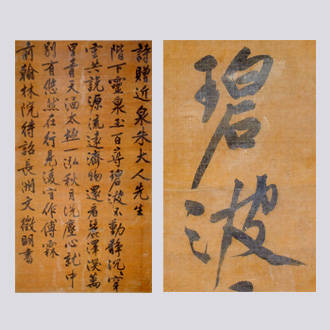 詩贈近泉朱大人先生
階下靈泉玉百尋碧波不動靜沉
共說源流遠濟物還看澤深萬
里青天涵太極一泓秋月洗塵心就中
別有悠然在行見宜作傅霖
前翰林院待詔長洲文徵明書
碧波